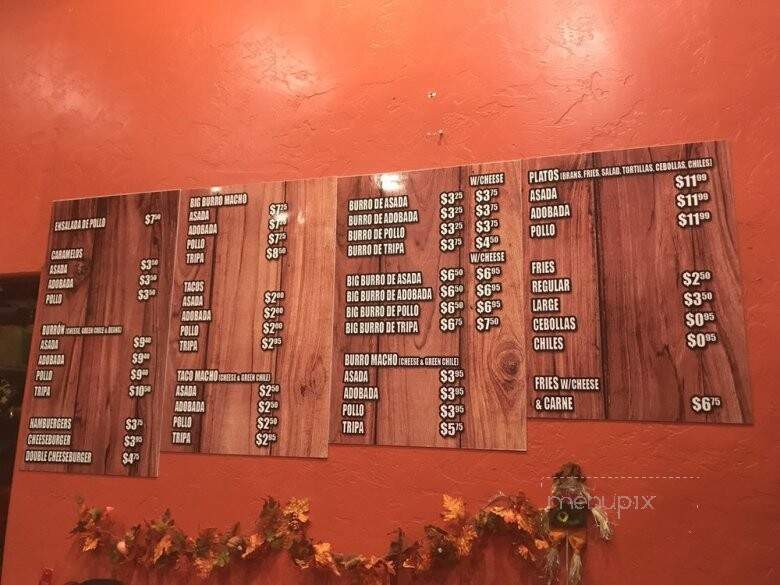 ENSALADA DE POLLO $7.50
CARAMELOS
ASADA $3.50
ADOBADA $3.50
POLLO $3.50
BURRÓN (CHEESE, GREEN CHILE & BEANS)
ASADA $9.00
ADOBADA $9.00
POLLO $9.00
TRIPA $10.50
HAMBURGERS $3.75
CHEESEBURGER $3.95
DOUBLE CHEESEBURGER $4.75
BIG BURRO MACHO
ASADA $7.25
ADOBADA $7.25
POLLO $7.25
TRIPA $8.50
TACOS
ASADA $2.00
ADOBADA $2.00
POLLO $2.00
TRIPA $2.95
TACO MACHO (CHEESE & GREEN CHILE)
ASADA $2.50
ADOBADA $2.50
POLLO $2.50
TRIPA $2.95
W/CHEESE
BURRO DE ASADA $3.25 $3.75
BURRO DE ADOBADA $3.25 $3.75
BURRO DE POLLO $3.25 $3.75
BURRO DE TRIPA $3.75 $4.50
W/CHEESE
BIG BURRO DE ASADA $6.50 $6.95
BIG BURRO DE ADOBADA $6.50 $6.95
BIG BURRO DE POLLO $6.50 $6.95
BIG BURRO DE TRIPA $6.75 $7.50
BURRO MACHO (CHEESE & GREEN CHILE)
ASADA $3.95
ADOBADA $3.95
POLLO $3.95
TRIPA $5.75
PLATOS (BEANS, FRIES, SALAD, TORTILLAS, CEBOLLAS, CHILES)
ASADA $11.99
ADOBADA $11.99
POLLO $11.99
FRIES
REGULAR $2.50
LARGE $3.50
CEBOLLAS $0.95
CHILES $0.95
FRIES W/CHEESE
& CARNE $6.75
menupix